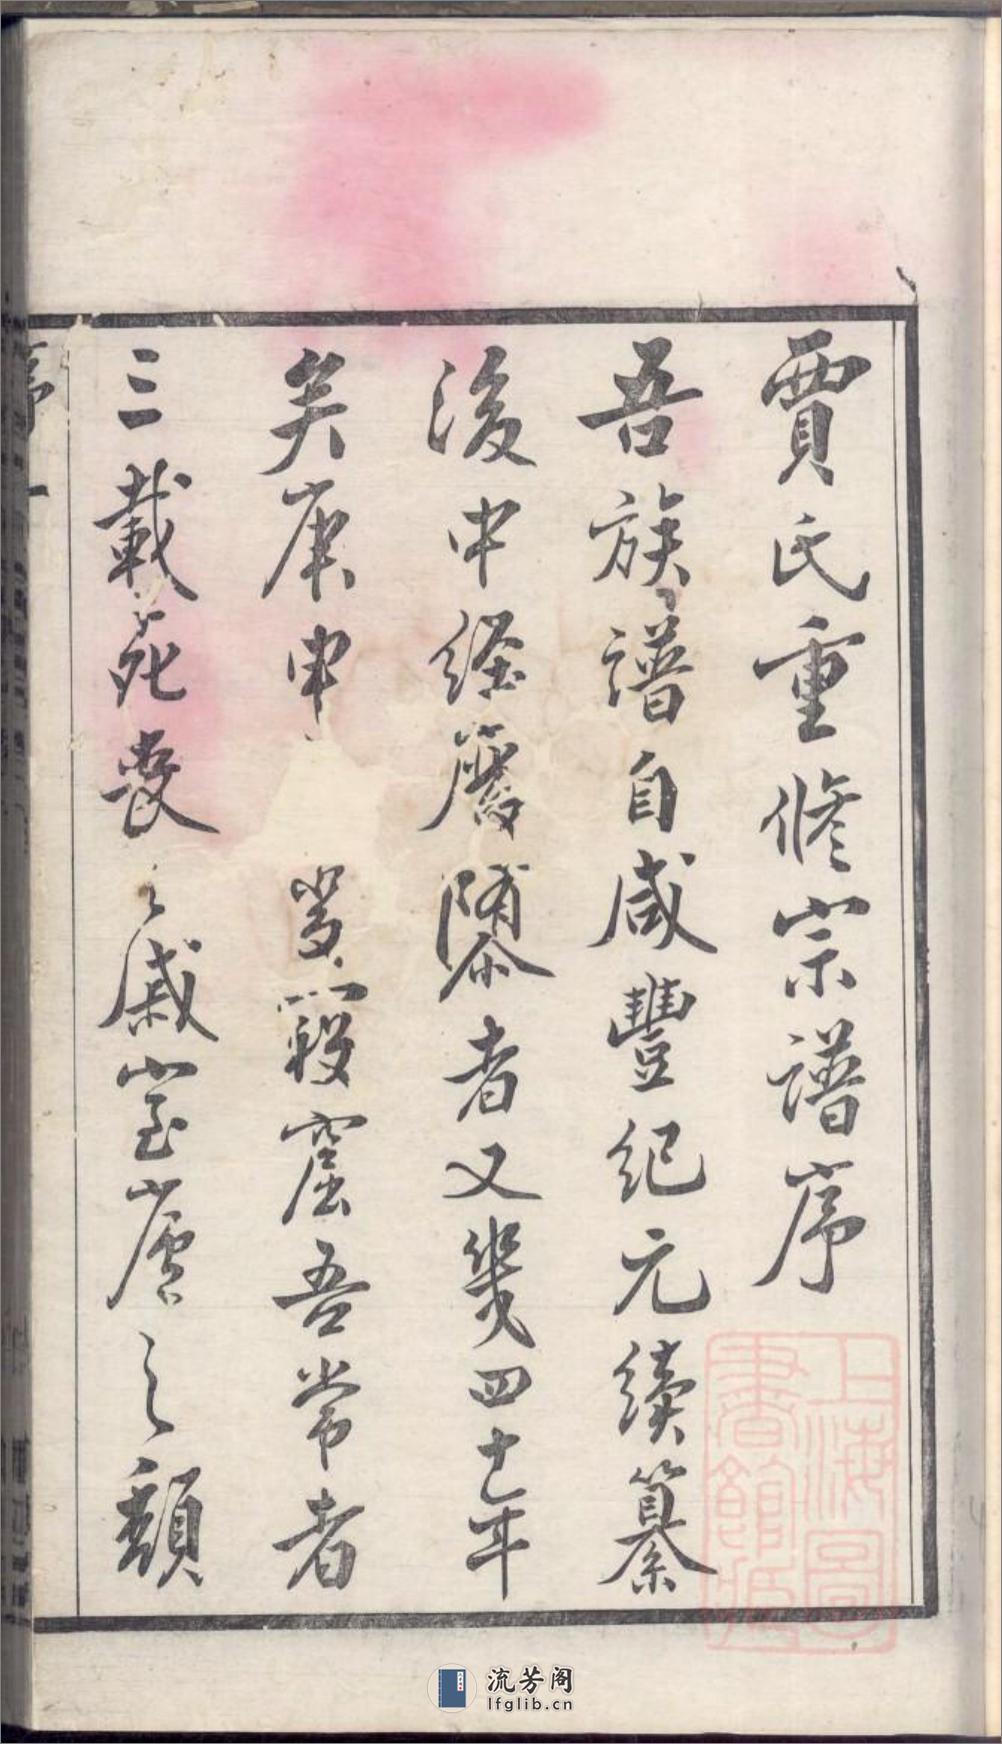 賈氏重修宗譜序
吾族譜自咸豐紀元續纂
後中經者又幾四十年
矣庚申窟吾常者
三載死喪之戚室廬之頹
序一
上海圖書館藏
流芳阁
lfglib.cn